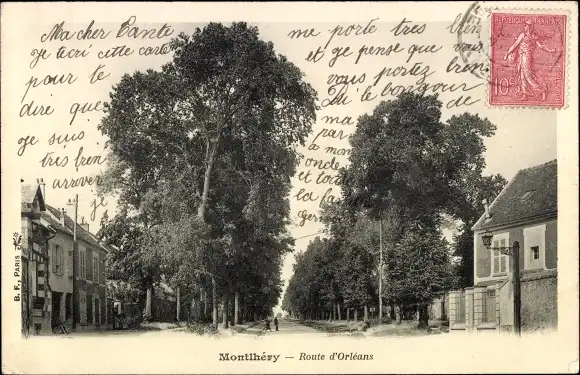 Ma cher Tante
je t'ecris cette carte
pour te
dire que
ge suis
très bien
arrover
je
me porte tres bien
et ge pense que vous
vous portez bien
Dit le bonjour de
ma par
a mon
onde
et ta
la
REPUBLIQUE FRANÇAISE
10c
B. F., PARIS
Montlhéry – Route d'Orléans